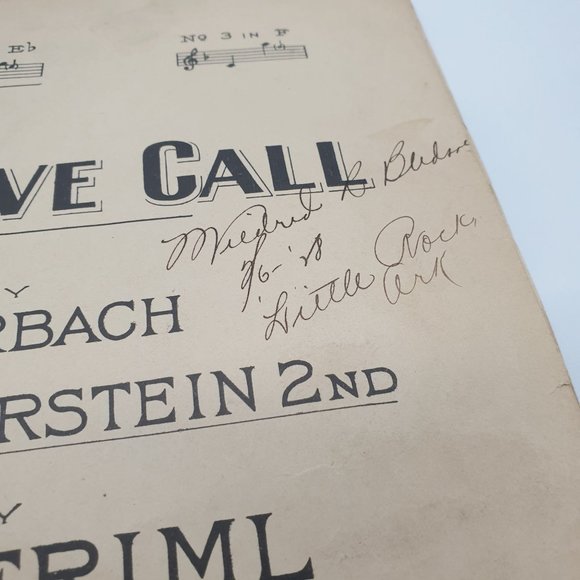 Eb No 3 IN F
VE CALL
Mildred B Bledsoe
Little Rock,
Ark
Y
RBACH
RSTEIN 2ND
Y
FRIML